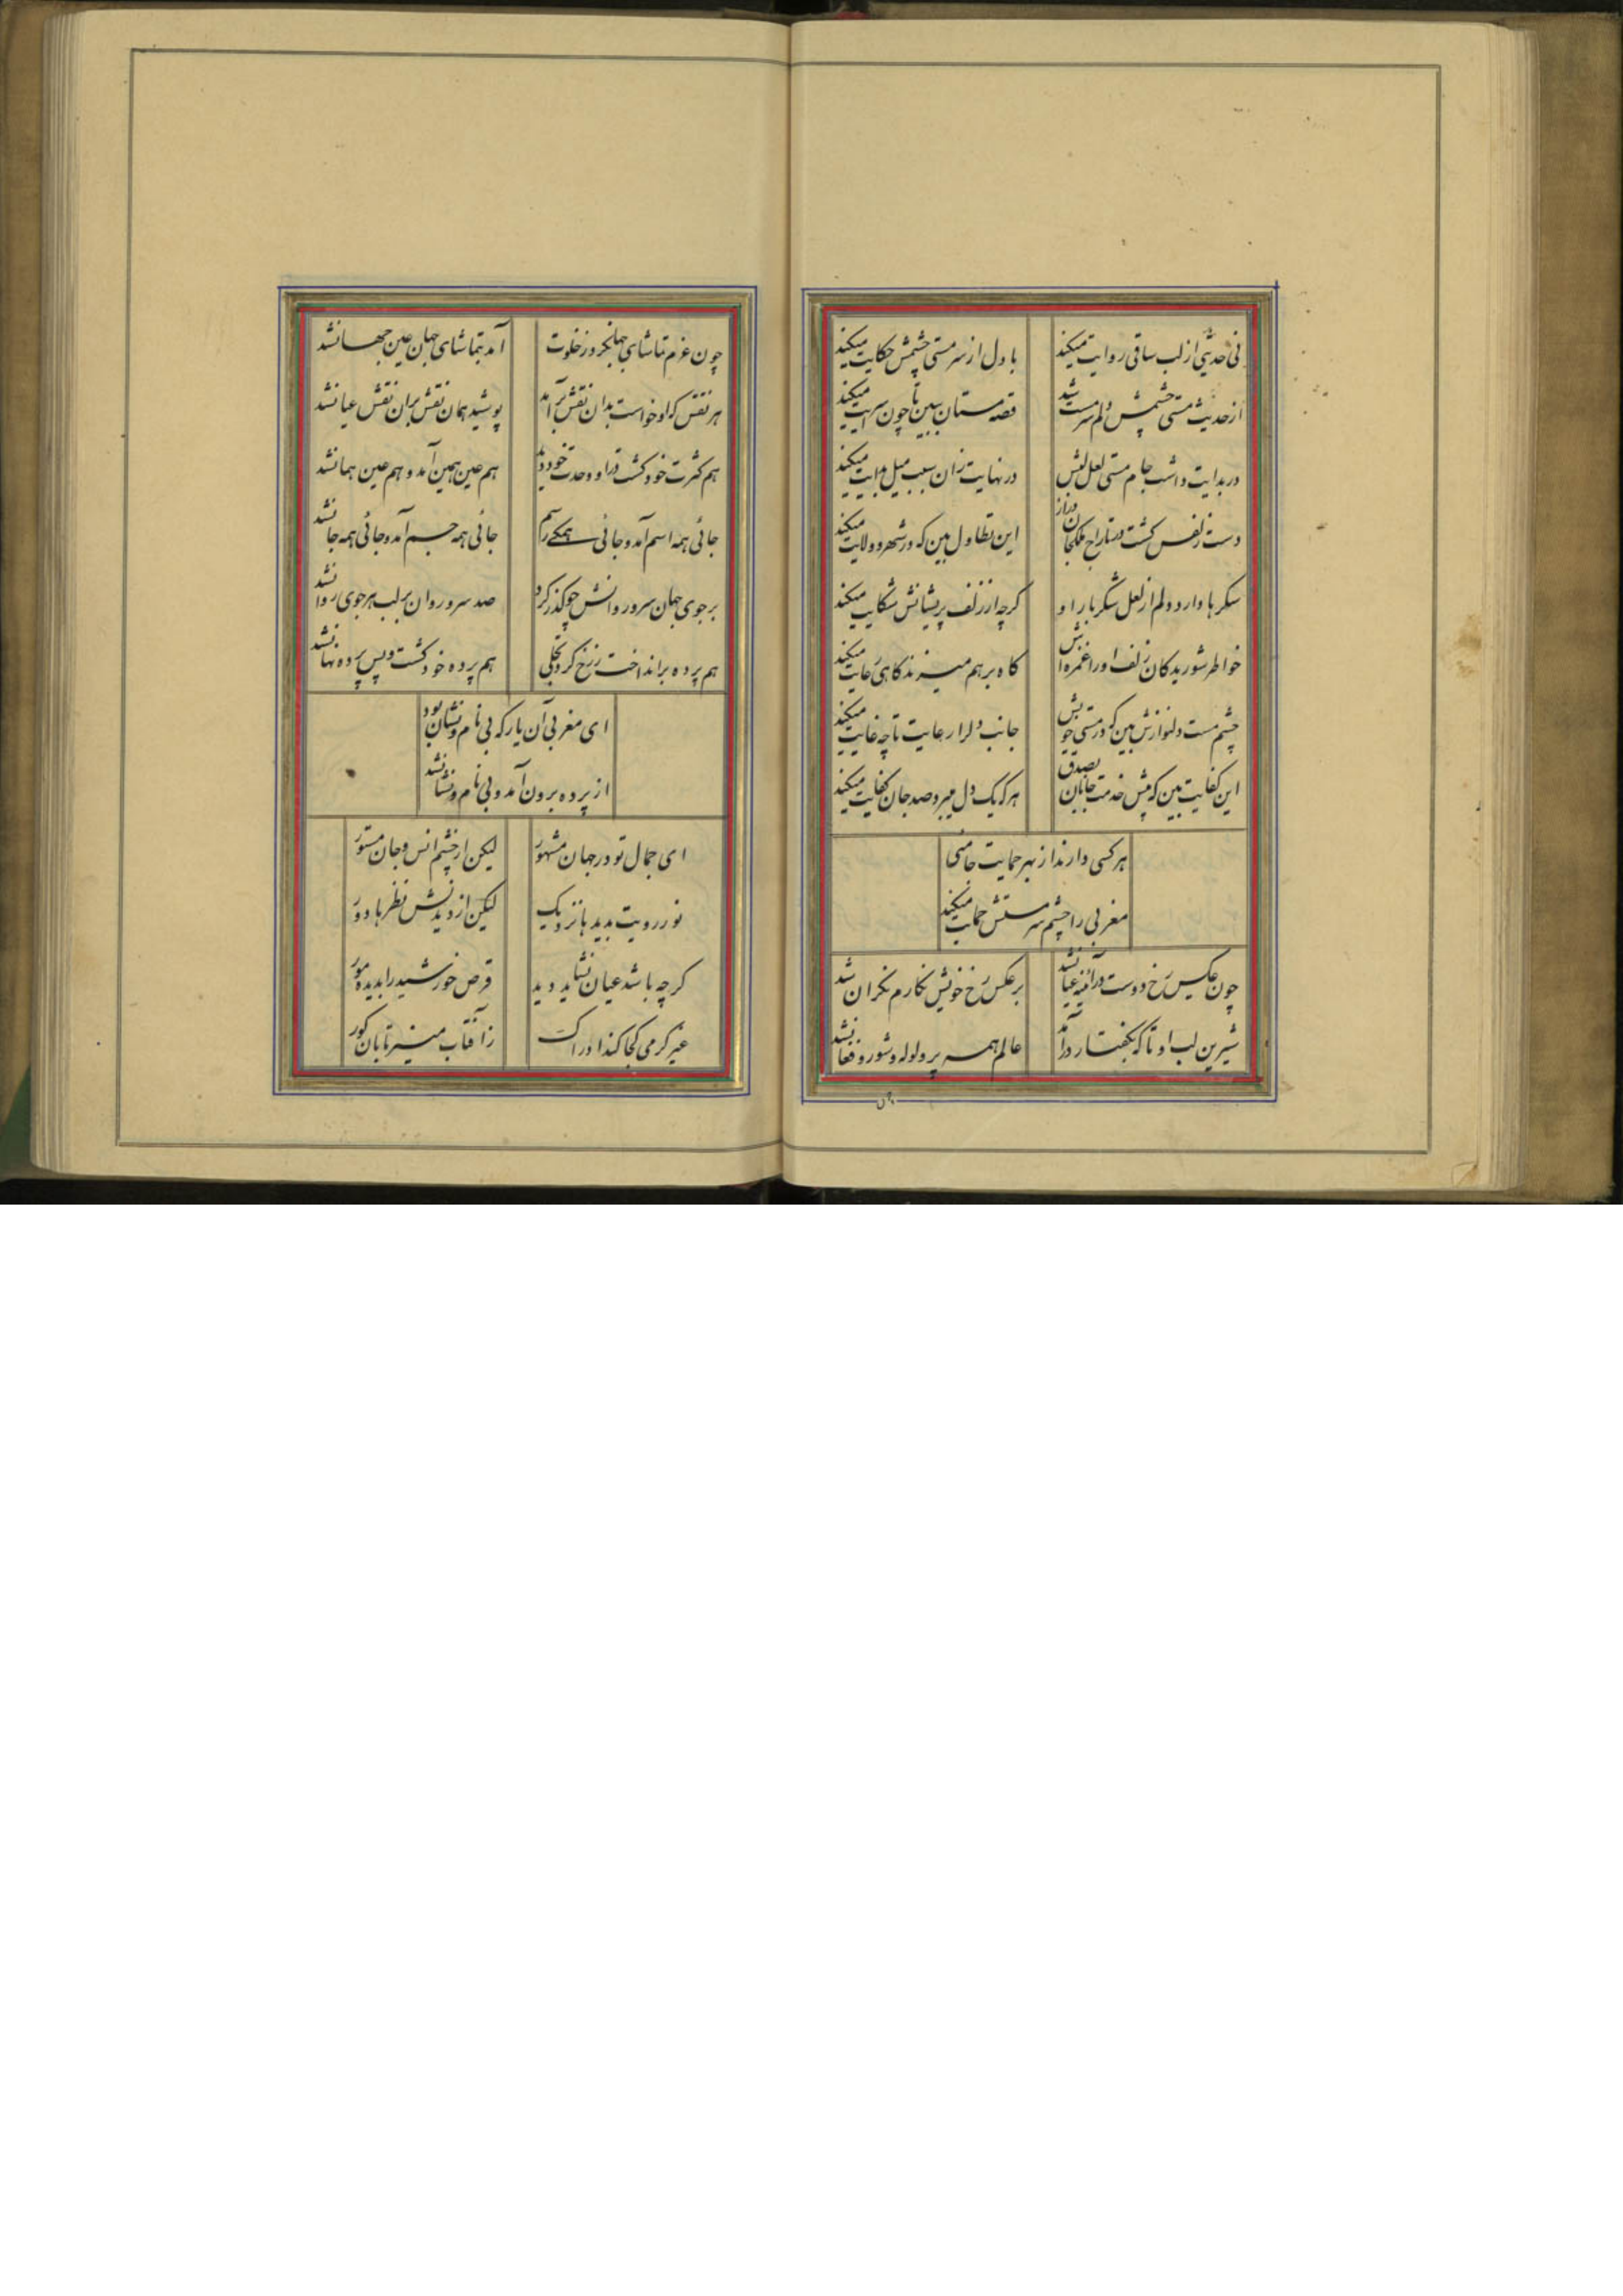 نی حدیثی از لب ساقی روایت میکند با دل از سرمستی چشمش حکایت میکند
از حدیث مستی چشمش دلم سرمست شد قصه مستان ببین تا چون سرایت میکند
در بدایت داشت جام مستی لعل لبش در نهایت زان سبب میل بدایت میکند
دست زلفس کشت در تاراج ملک جان دراز این تطاول بین که در شهر و ولایت میکند
شکرها دارد دلم از لعل شکربار او کرچه از زلف پریشانش شکایت میکند
خواطر شوریدکان زلف او را غمزه اش کاه بر هم میزند کاهی رعایت میکند
چشم مست دلنوازش بین که در مستی خویش جانب دلرا رعایت تا چه غایت میکند
این کفایت بین که پیش خدمت جانان بصدق هر که یک دل میبرد صد جان کفایت میکند
هر کسی دارند از بهر حمایت حامئی
مغربی را چشم سر مستش حمایت میکند
چون عکس رخ دوست در آئینه عیانشد بر عکس رخ خویش نکارم نکران شد
شیرین لب او تا که بکفتار در آمد عالم همه پر ولوله و شور و فغانشد
چون عزم تماشای جهانکرد ز خلوت آمد بتماشای جهان عین جهانشد
هر نقش که او خواست بدان نقش بر آمد پوشید همان نقش بران نقش عیانشد
هم کثرت خود کشت در او وحدت خود دید هم عین همین آمد و هم عین همانشد
جائی همه اسم آمد و جائی همکی رسم جائی همه جسم آمد و جائی همه جانشد
بر جوی جهان سرو روانش چو کذر کرد صد سرو روان بر لب هر جوی روانشد
هم پرده بر انداخت ز رخ کرد تجلی هم پرده خود کشت و پس پرده نهانشد
ای مغربی آن یار که بی نام و نشان بود
از پرده برون آمد و بی نام و نشانشد
ای جمال تو در جهان مشهور لیکن از چشم انس و جان مستور
نور رویت بدیدها نزدیک لیکن از دیدنش نظرها دور
کرچه باشد عیان نشاید دید قرص خورشید را بدیده مور
غیر کرمی کجا کند ادراک ز آفتاب منیر تابان کور